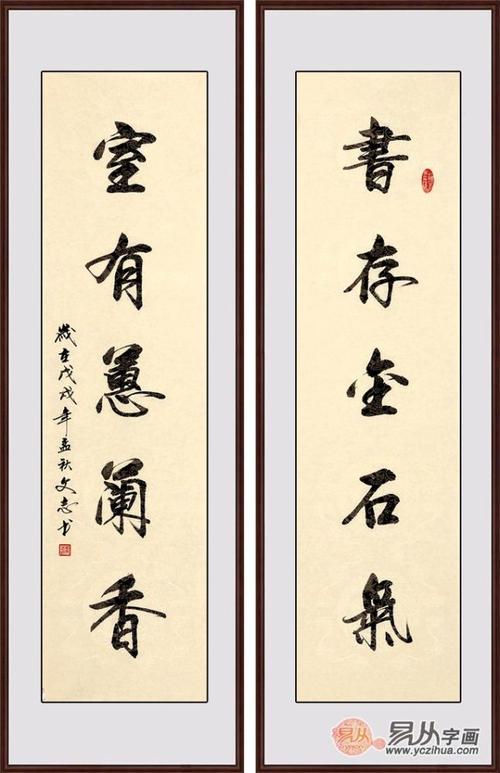 書存金石氣
室有蕙蘭香
歲在戊戌年孟秋文志书
易从字画
www.yczihua.com